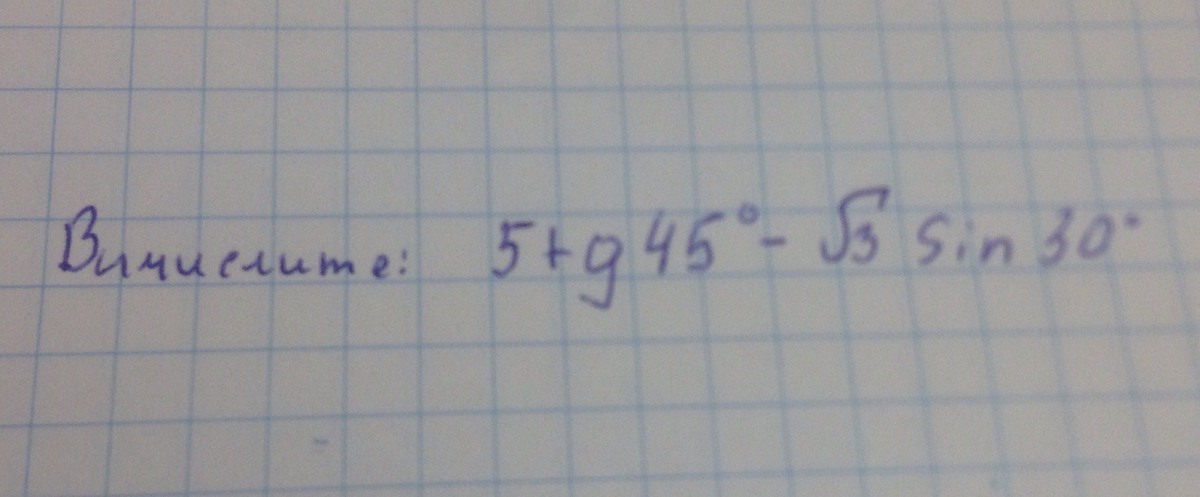 Вичислите: 5tg45° - √3 sin 30°